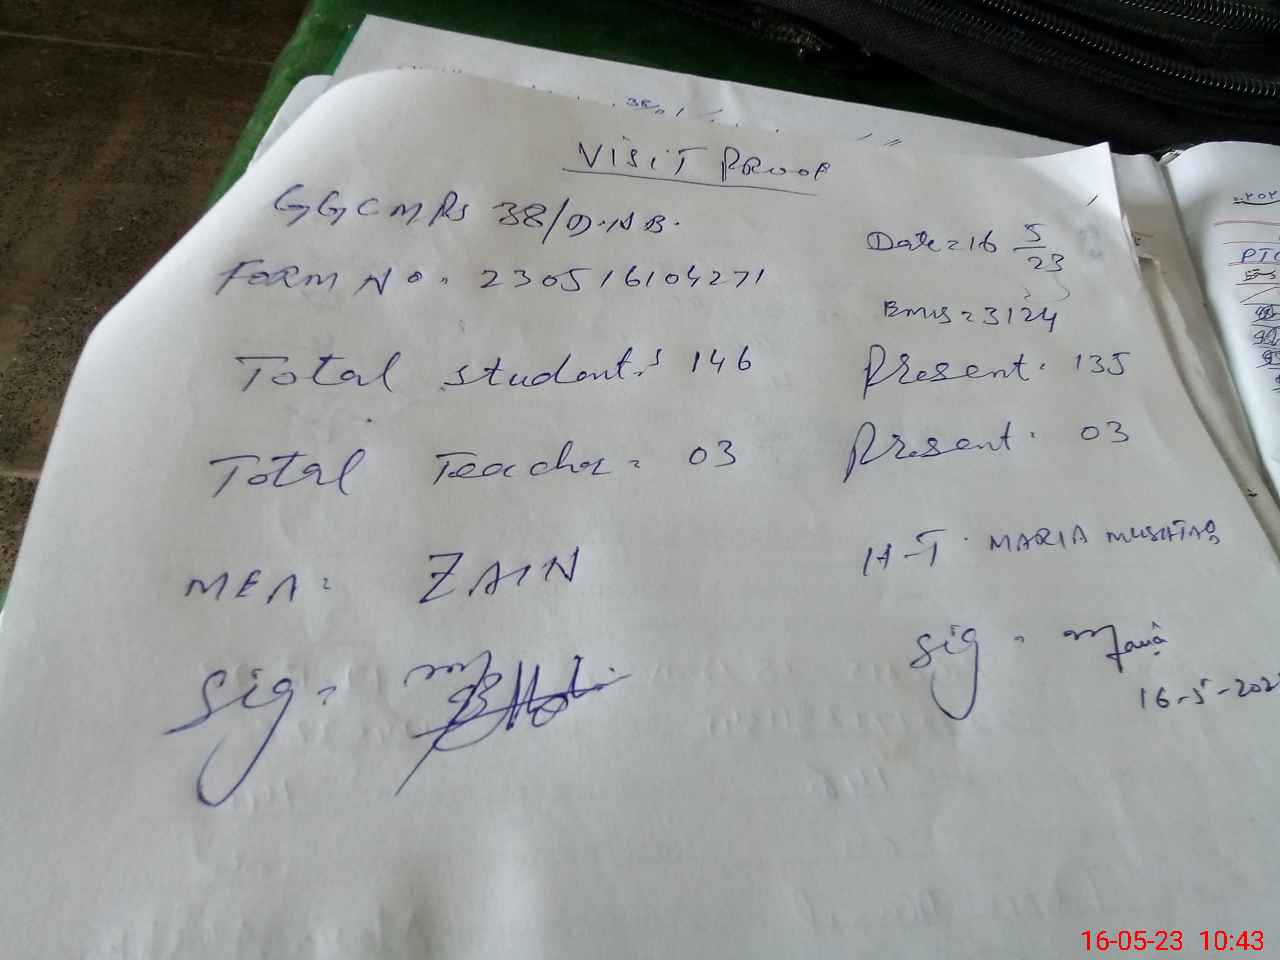 Visit Proof
GGCMPS 38/D.N.B.
Date = 16 5/23
Form No. 230516104271
Bmis = 3124
Total students 146 Present. 135
Total Teacher = 03 Present. 03
MEA = ZAIN H-T. MARIA MUSHTAQ
Sig = Sig = Maria
16-5-202
PTC
16-05-23 10:43